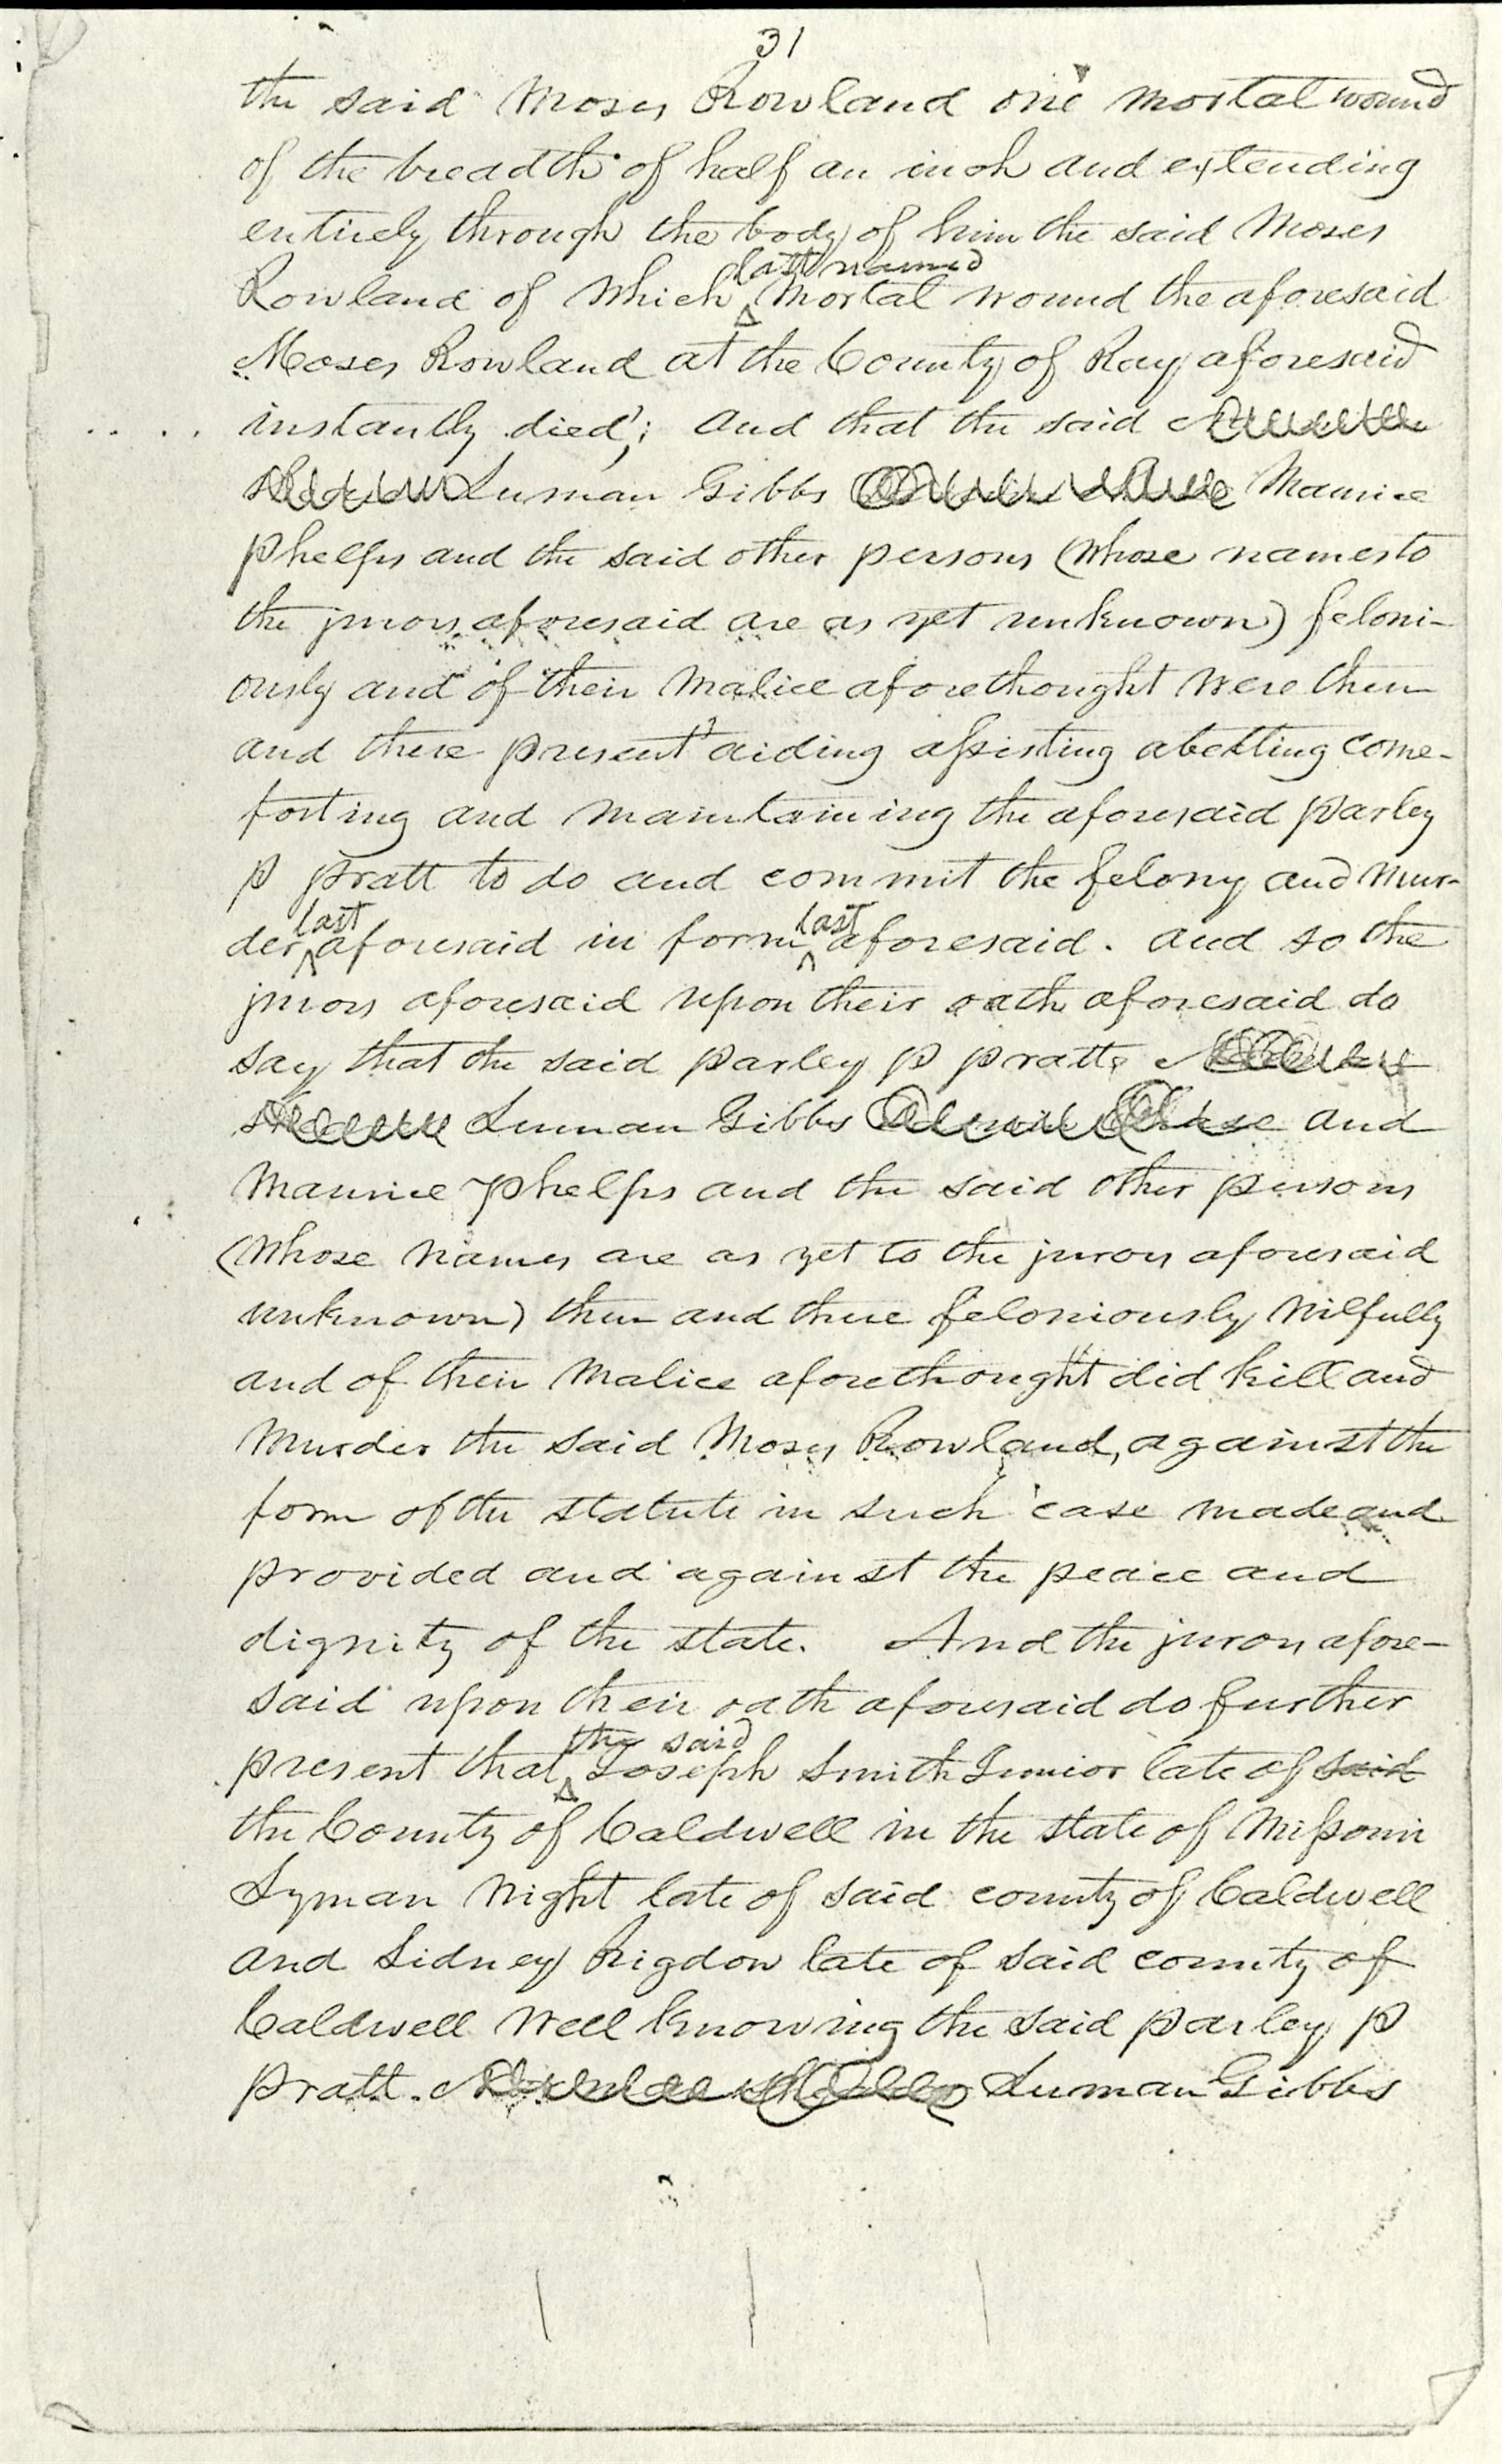 31
the said Moses Rowland one mortal wound
of the breadth of half an inch and extending
entirely through the body of him the said Moses
last named
Rowland of which mortal wound the aforesaid
Moses Rowland at the County of Ray aforesaid
instantly died; and that the said
Luman Gibbs Maurice
Phelps and the said other persons (whose names to
the jurors aforesaid are as yet unknown) feloni-
ously and of their malice aforethought were then
and there present aiding assisting abetting come-
forting and maintaining the aforesaid Parley
P Pratt to do and commit the felony and mur-
last last
der aforesaid in form aforesaid. and so the
jurors aforesaid upon their oath aforesaid do
say that the said Parley P Pratt
Luman Gibbs and
Maurice Phelps and the said other persons
(whose names are as yet to the jurors aforesaid
unknown) then and there feloniously wilfully
and of their malice aforethought did kill and
murder the said Moses Rowland, against the
form of the statute in such case made and
provided and against the peace and
dignity of the state. And the jurors afore-
said upon their oath aforesaid do further
the said
present that Joseph Smith Junior late of said
the County of Caldwell in the state of Missouri
Lyman Wight late of said county of Caldwell
and Sidney Rigdon late of said county of
Caldwell well knowing the said Parley P
Pratt. Luman Gibbs